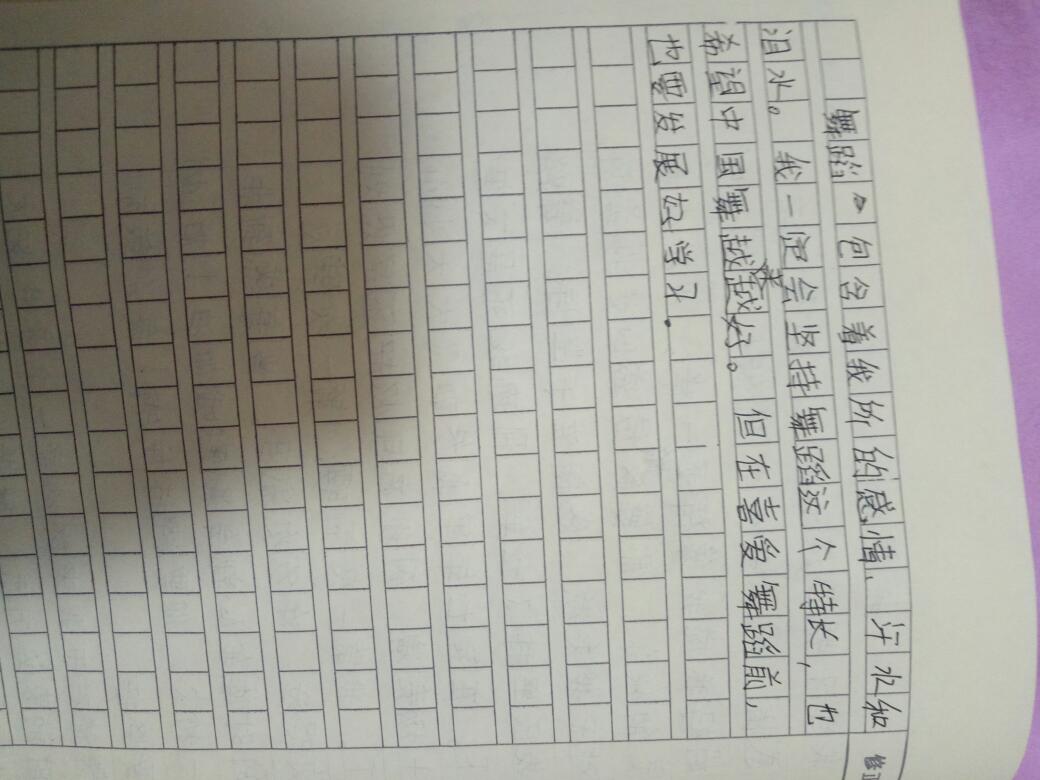 舞蹈包含着我所的感情、汗水和
泪水。我一定会坚持舞蹈这个特长,也
希望中国舞越来越好。但在喜爱舞蹈前,
也要发展好学习.